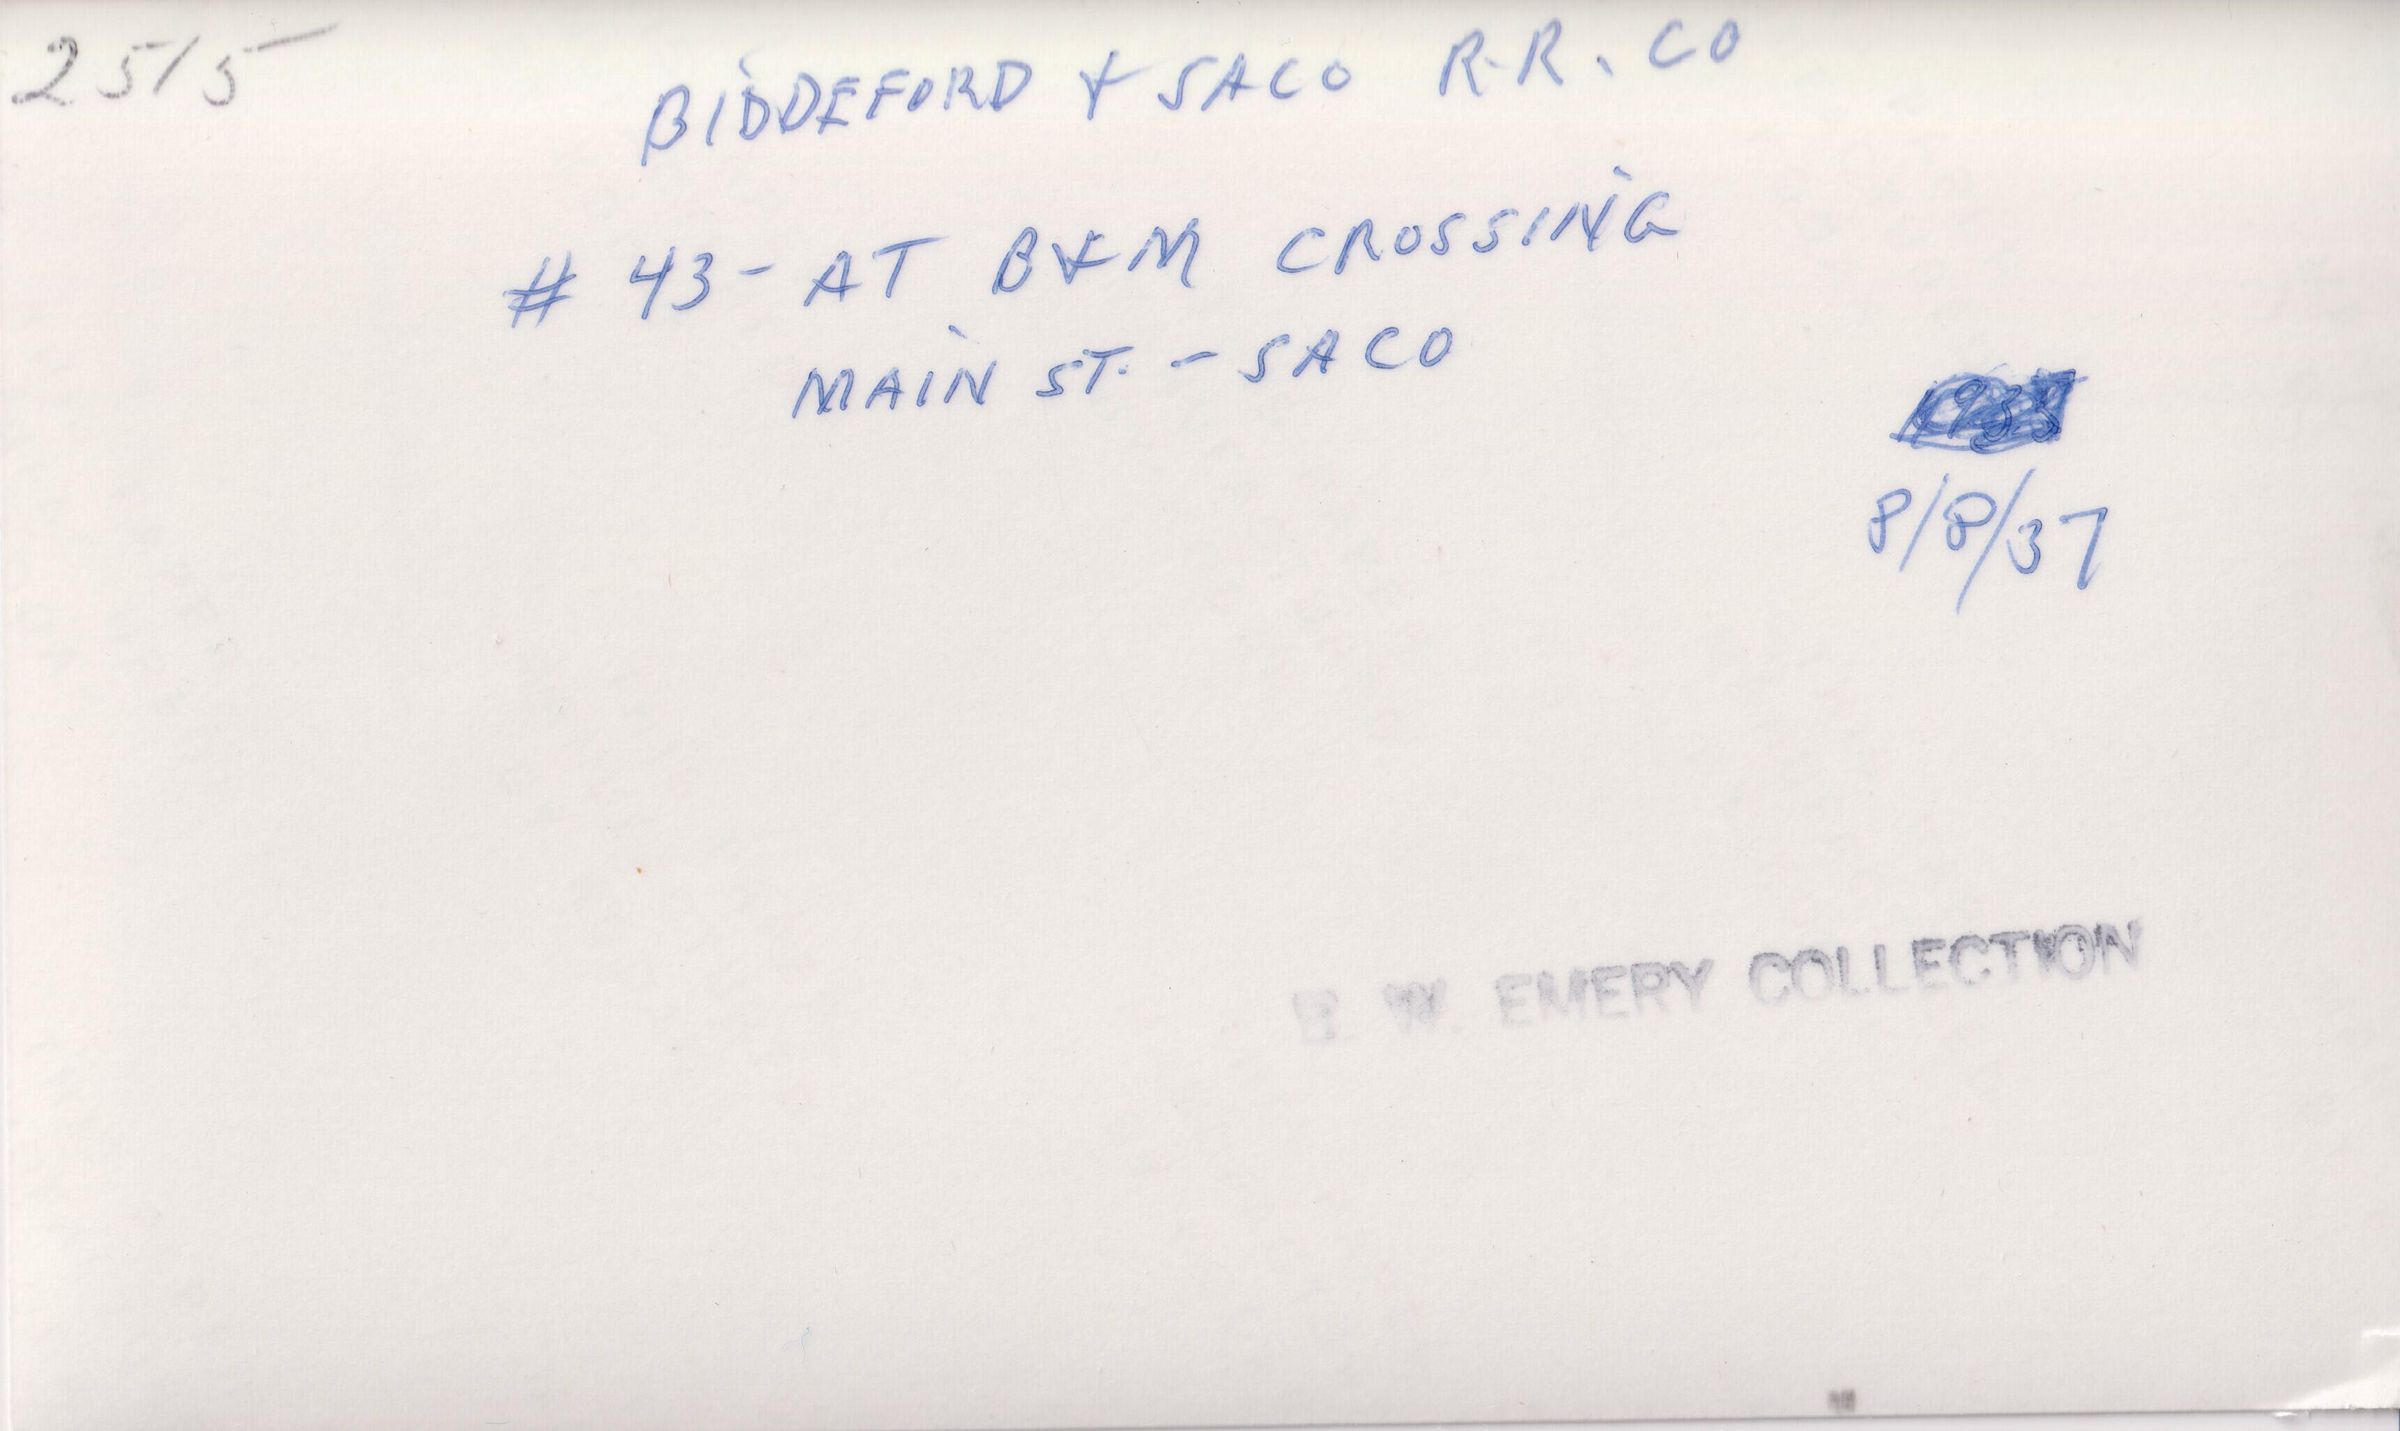 2515
BIDDEFORD & SACO R.R. CO
# 43 - AT B&M CROSSING
MAIN ST. - SACO
8/8/37
W. EMERY COLLECTION